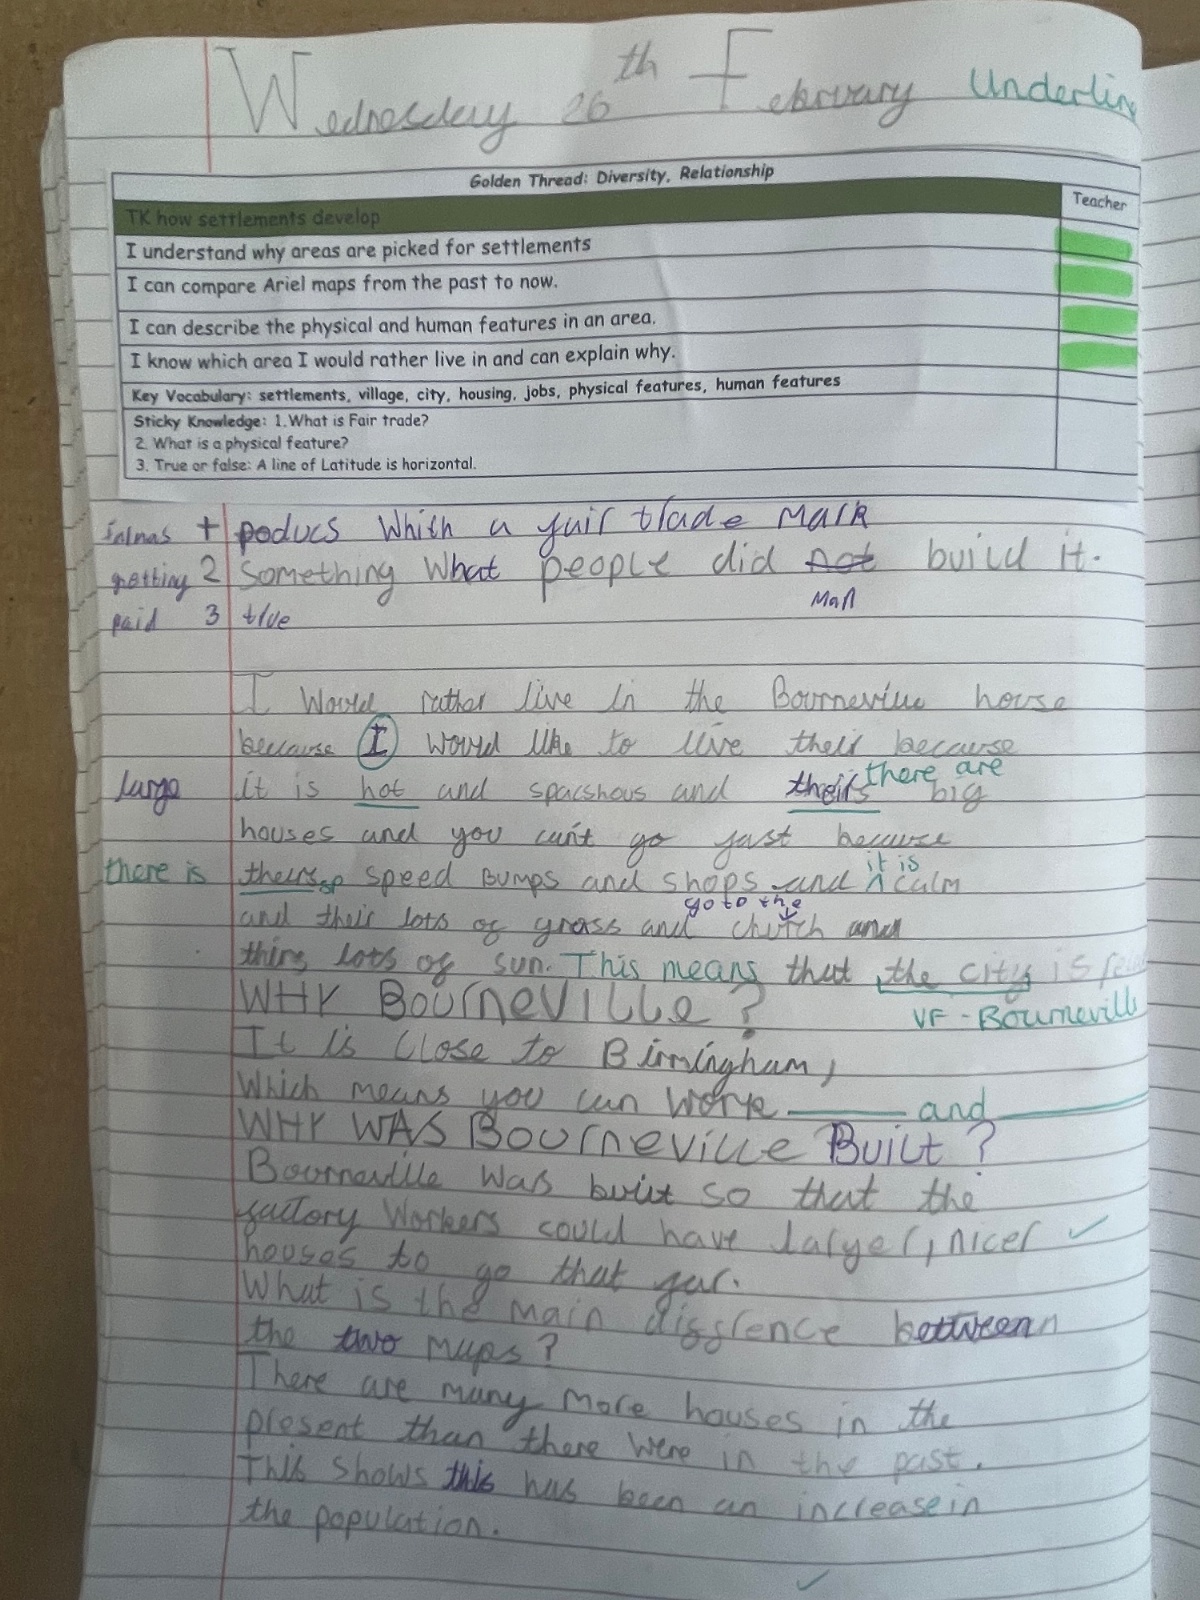 Wednesday 26th February Underlin
Golden Thread: Diversity, Relationship
TK how settlements develop
Teacher
I understand why areas are picked for settlements
I can compare Ariel maps from the past to now.
I can describe the physical and human features in an area.
I know which area I would rather live in and can explain why.
Key Vocabulary: settlements, village, city, housing, jobs, physical features, human features
Sticky Knowledge: 1. What is Fair trade?
2. What is a physical feature?
3. True or false: A line of Latitude is horizontal.
+ poducs Which a fair trade Mark
getting 2 Something What people did not build it.
Man
paid 3 true
I Would rather live in the Bourneville house
because I would like to live their because
there are
large it is hot and spacshous and theirs big
houses and you cant go fast because
it is
there is theirs sp speed Bumps and shops and ^ calm
go to the
and their lots of grass and church and
thirs lots of sun. This means that the city is
WHY BOURNEVILLE? VF - Bournevill
It is Close to Birmingham,
Which means you can Work and
WHY WAS BOURNEVILLE Built?
Bourneville was built so that the
factory Workers could have larger, nicer ✓
houses to go that far.
What is the main diffrence between
the two maps?
There are many more houses in the
present than there were in the past.
This shows this has been an increase in
the population.
✓